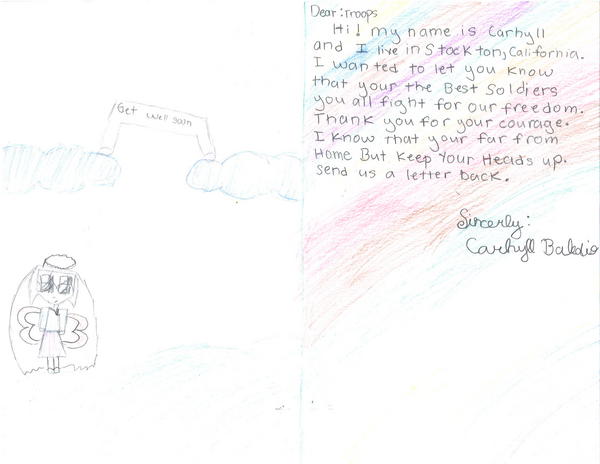 Get well soon
Dear: Troops
Hi! my name is Carhyll
and I live in Stockton, California.
I wanted to let you know
that your the Best Soldiers
you all fight for our freedom.
Thank you for your courage.
I know that your far from
Home But keep Your Heads up.
Send us a letter back.
Sincerly:
Carhyll